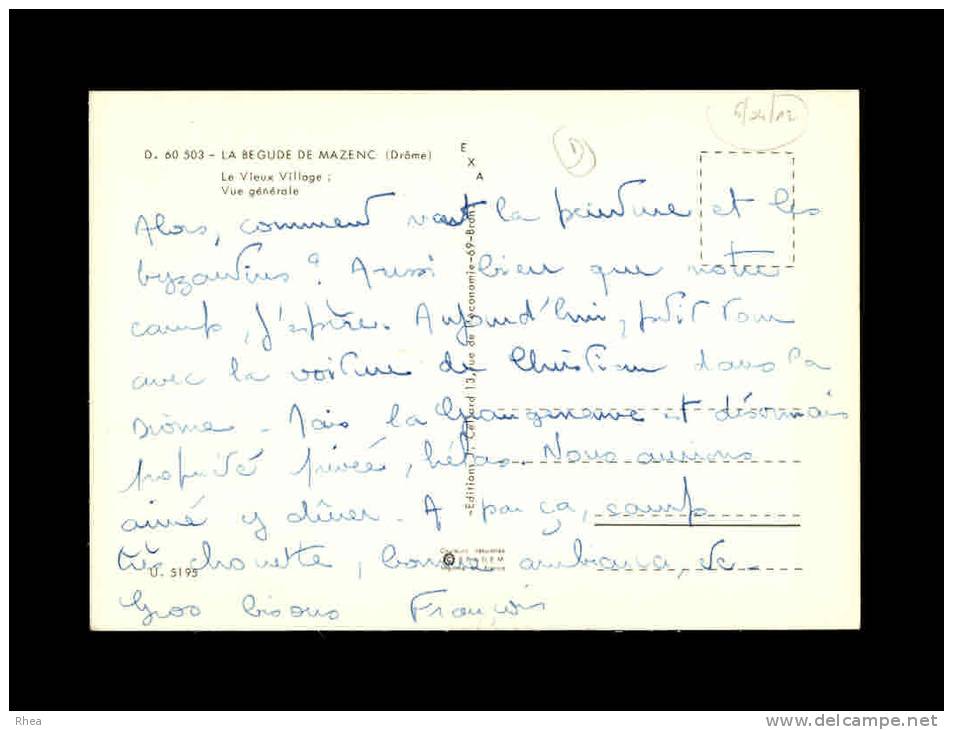 D. 60 503 - LA BEGUDE DE MAZENC (Drôme)
Le Vieux Village ;
Vue générale
EXA
Alors, comment vont la peinture et les
byzantins ? Aussi bien que notre
camp, j'espère. Aujourd'hui, petit tour
avec la voiture de Christian dans la
Drôme - Mais la est désormais
propriété privée, hélas. Nous aurions
aimé y dîner. A part ça, camp
très chouette, bonne ambiance, etc.
Gros bisous François
13, rue de l'économie-69-Bron
U. 5195
Rhea
www.delcampe.net